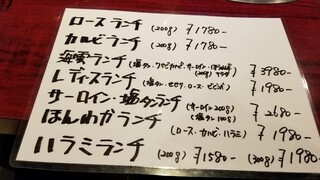 ロースランチ (200g) ¥1780-
カルビランチ (200g) ¥1780-
ランチ ¥3980-
(200g)
レディスランチ (塩タン・セセリ・ロース・ ¥1980-
サーロイン・塩タンランチ (サーロイン200g) ¥2680-
(塩タン100g)
ほんわかランチ (ロース・カルビ・ハラミ) ¥1980-
ハラミランチ (200g) ¥1580- (300g) ¥1980-